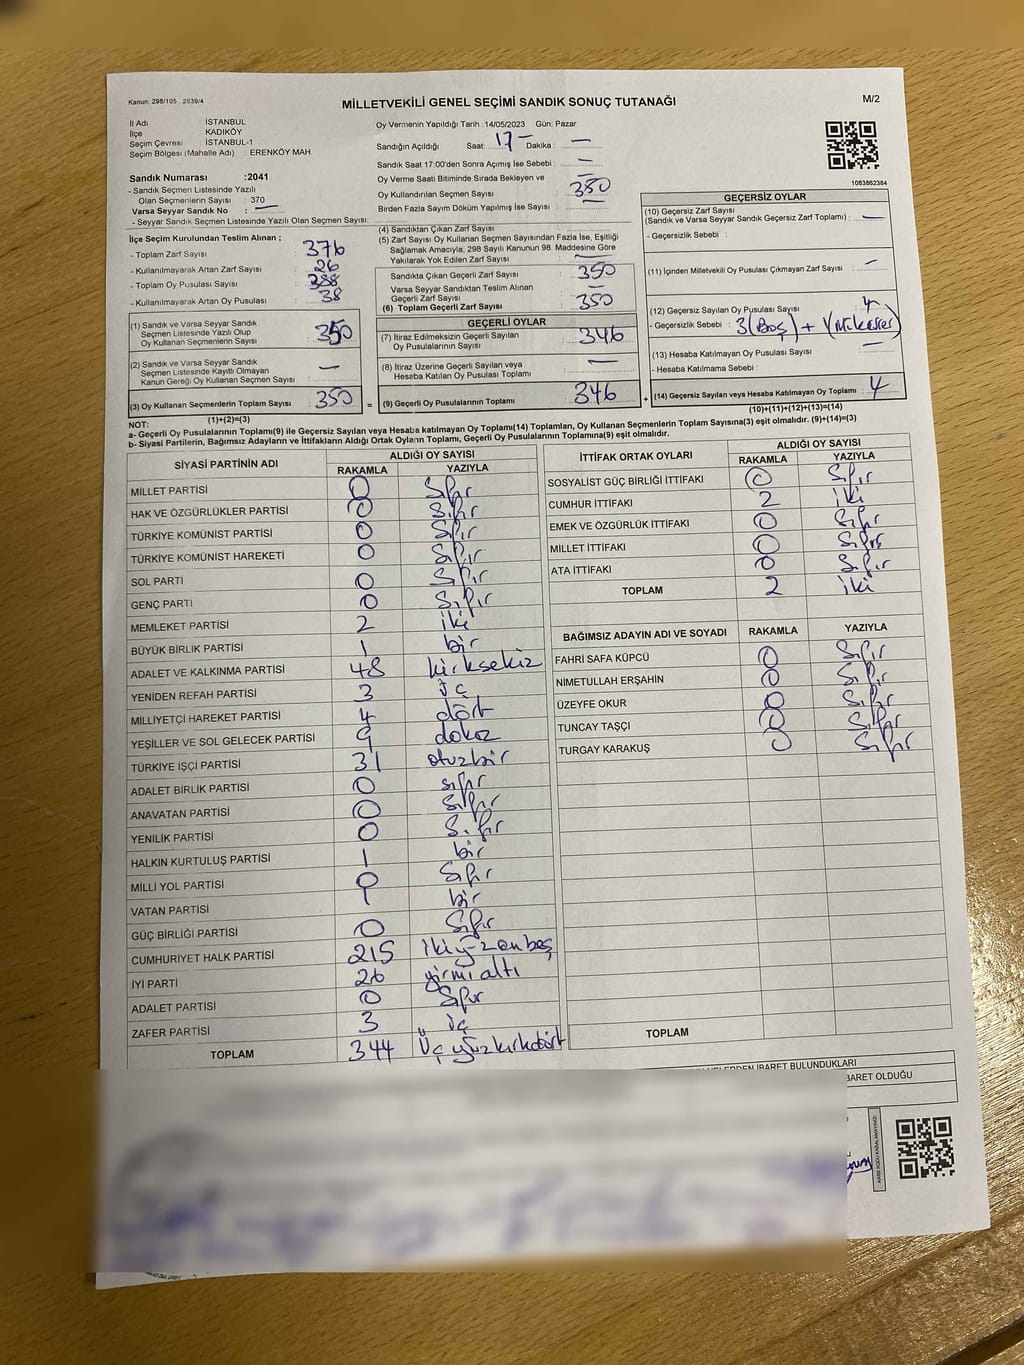 Kanun: 298/105 , 2839/4
MİLLETVEKİLİ GENEL SEÇİMİ SANDIK SONUÇ TUTANAĞI
M/2
İl Adı İSTANBUL
İlçe KADIKÖY
Seçim Çevresi : İSTANBUL-1
Seçim Bölgesi (Mahalle Adı) : ERENKÖY MAH.
Sandık Numarası :2041
- Sandık Seçmen Listesinde Yazılı
Olan Seçmenlerin Sayısı : 370
Varsa Seyyar Sandık No : —
- Seyyar Sandık Seçmen Listesinde Yazılı Olan Seçmen Sayısı:
Oy Vermenin Yapıldığı Tarih :14/05/2023 Gün: Pazar
Sandığın Açıldığı Saat: 17 — Dakika : —
Sandık Saat 17:00'den Sonra Açımış İse Sebebi : —
Oy Verme Saati Bitiminde Sırada Bekleyen ve —
Oy Kullandırılan Seçmen Sayısı : 350
Birden Fazla Sayım Döküm Yapılmış İse Sayısı : —
1083862384
İlçe Seçim Kurulundan Teslim Alınan ;
- Toplam Zarf Sayısı : 376
- Kullanılmayarak Artan Zarf Sayısı : 26
- Toplam Oy Pusulası Sayısı : 388
- Kullanılmayarak Artan Oy Pusulası : 38
(1) Sandık ve Varsa Seyyar Sandık
Seçmen Listesinde Yazılı Olup
Oy Kullanan Seçmenlerin Sayısı : 350
(2) Sandık ve Varsa Seyyar Sandık
Seçmen Listesinde Kayıtlı Olmayan
Kanun Gereği Oy Kullanan Seçmen Sayısı : —
(3) Oy Kullanan Seçmenlerin Toplam Sayısı : 350
(1)+(2)=(3)
(4) Sandıktan Çıkan Zarf Sayısı :
(5) Zarf Sayısı Oy Kullanan Seçmen Sayısından Fazla İse, Eşitliği
Sağlamak Amacıyla; 298 Sayılı Kanunun 98. Maddesine Göre
Yakılarak Yok Edilen Zarf Sayısı : —
Sandıkta Çıkan Geçerli Zarf Sayısı : 350
Varsa Seyyar Sandıktan Teslim Alınan
Geçerli Zarf Sayısı : —
(6) Toplam Geçerli Zarf Sayısı : 350
GEÇERLİ OYLAR
(7) İtiraz Edilmeksizin Geçerli Sayılan
Oy Pusulalarının Sayısı : 346
(8) İtiraz Üzerine Geçerli Sayılan veya
Hesaba Katılan Oy Pusulası Toplamı : —
= (9) Geçerli Oy Pusulalarının Toplamı : 346
GEÇERSİZ OYLAR
(10) Geçersiz Zarf Sayısı
(Sandık ve Varsa Seyyar Sandık Geçersiz Zarf Toplamı) : —
- Geçersizlik Sebebi :
(11) İçinden Milletvekili Oy Pusulası Çıkmayan Zarf Sayısı : —
(12) Geçersiz Sayılan Oy Pusulası Sayısı : 4
- Geçersizlik Sebebi : 3(Boş) + 1(Mükerrer)
(13) Hesaba Katılmayan Oy Pusulası Sayısı : —
- Hesaba Katılmama Sebebi :
+ (14) Geçersiz Sayılan veya Hesaba Katılmayan Oy Toplamı : 4
(10)+(11)+(12)+(13)=(14)
NOT:
a- Geçerli Oy Pusulalarının Toplamı(9) ile Geçersiz Sayılan veya Hesaba katılmayan Oy Toplamı(14) Toplamları, Oy Kullanan Seçmenlerin Toplam Sayısına(3) eşit olmalıdır. (9)+(14)=(3)
b- Siyasi Partilerin, Bağımsız Adayların ve İttifakların Aldığı Ortak Oyların Toplamı, Geçerli Oy Pusulalarının Toplamına(9) eşit olmalıdır.
SİYASİ PARTİNİN ADI ALDIĞI OY SAYISI
RAKAMLA YAZIYLA
MİLLET PARTİSİ 0 Sıfır
HAK VE ÖZGÜRLÜKLER PARTİSİ 0 Sıfır
TÜRKİYE KOMÜNİST PARTİSİ 0 Sıfır
TÜRKİYE KOMÜNİST HAREKETİ 0 Sıfır
SOL PARTİ 0 Sıfır
GENÇ PARTİ 0 Sıfır
MEMLEKET PARTİSİ 2 iki
BÜYÜK BİRLİK PARTİSİ 1 bir
ADALET VE KALKINMA PARTİSİ 48 kırksekiz
YENİDEN REFAH PARTİSİ 3 üç
MİLLİYETÇİ HAREKET PARTİSİ 4 dört
YEŞİLLER VE SOL GELECEK PARTİSİ 9 dokuz
TÜRKİYE İŞÇİ PARTİSİ 31 otuzbir
ADALET BİRLİK PARTİSİ 0 sıfır
ANAVATAN PARTİSİ 0 Sıfır
YENİLİK PARTİSİ 0 Sıfır
HALKIN KURTULUŞ PARTİSİ 1 bir
MİLLİ YOL PARTİSİ 0 Sıfır
VATAN PARTİSİ 1 bir
GÜÇ BİRLİĞİ PARTİSİ 0 Sıfır
CUMHURİYET HALK PARTİSİ 215 ikiyüzonbeş
İYİ PARTİ 26 yirmialtı
ADALET PARTİSİ 0 Sıfır
ZAFER PARTİSİ 3 üç
TOPLAM 344 Üçyüzkırkdört
İTTİFAK ORTAK OYLARI ALDIĞI OY SAYISI
RAKAMLA YAZIYLA
SOSYALİST GÜÇ BİRLİĞİ İTTİFAKI 0 Sıfır
CUMHUR İTTİFAKI 2 iki
EMEK VE ÖZGÜRLÜK İTTİFAKI 0 Sıfır
MİLLET İTTİFAKI 0 Sıfır
ATA İTTİFAKI 0 Sıfır
TOPLAM 2 iki
BAĞIMSIZ ADAYIN ADI VE SOYADI RAKAMLA YAZIYLA
FAHRİ SAFA KÜPCÜ 0 Sıfır
NİMETULLAH ERŞAHİN 0 Sıfır
ÜZEYFE OKUR 0 Sıfır
TUNCAY TAŞÇI 0 Sıfır
TURGAY KARAKUŞ 0 Sıfır
TOPLAM
İBARET BULUNDUKLARI
BARET OLDUĞU